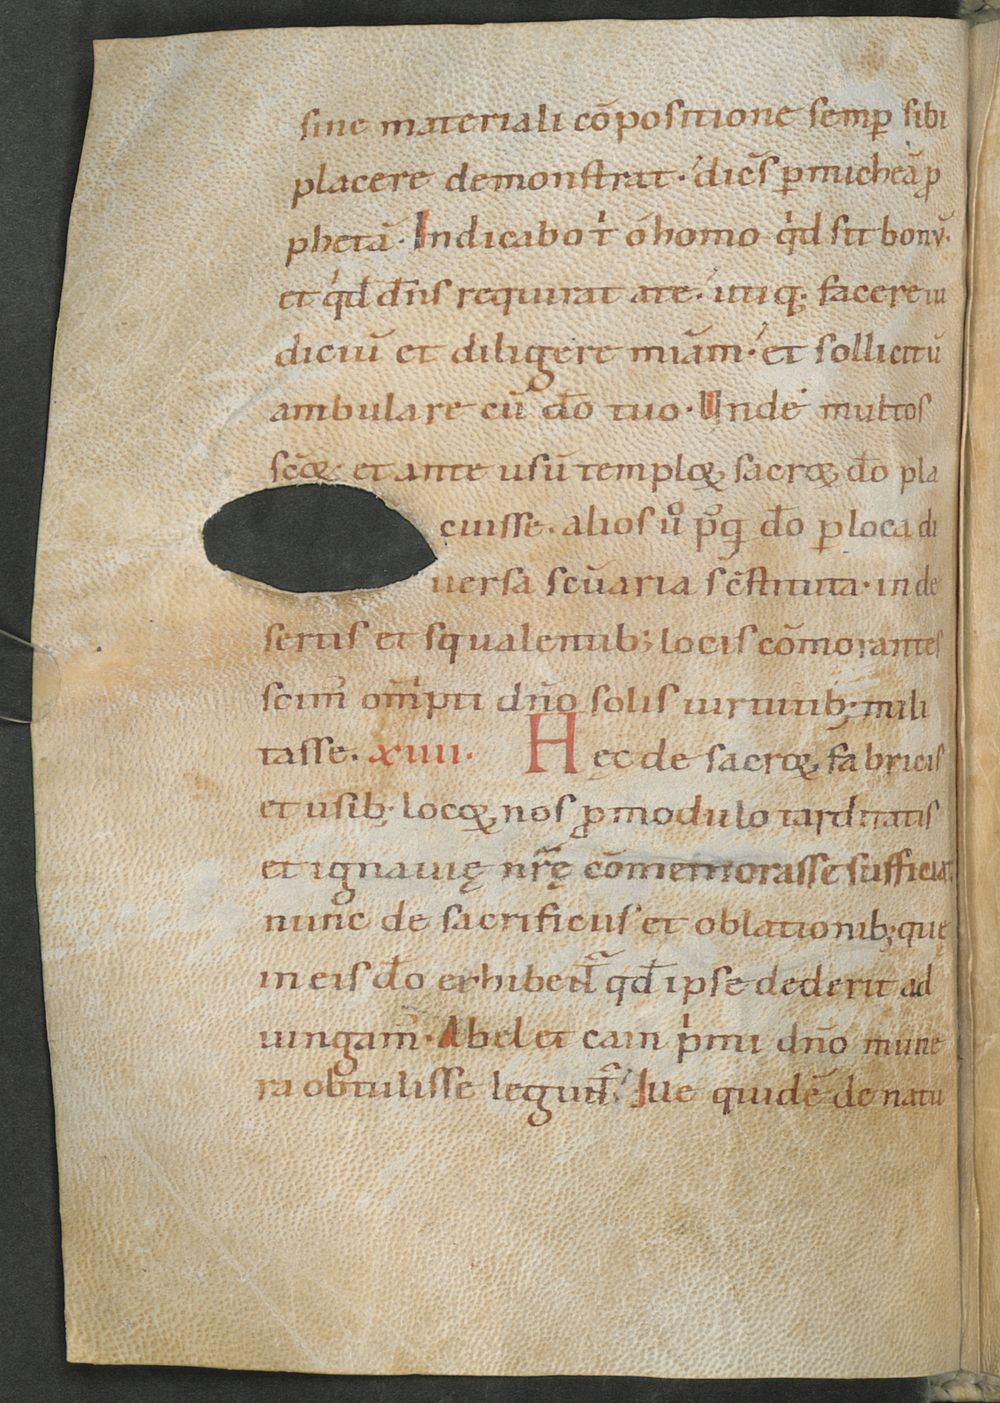 sine materiali cōpositione semꝑ sibi
placere demonstrat. dicēs ꝑ micheā ꝓ
phetā. Indicabo tͥ o homo qͥd sit bonū.
et qͥd dn̄s requirat a te. utiq; facere iu
diciū et diligere mīam. et sollicitū
ambulare cū dō tuo. Unde multos
scōꝝ et ante usū temploꝝ sacroꝝ dō pla
cuisse. alios uͦ pͣq̄ dō ꝑ loca di
uersa sc̄uaria sc̄t instituta. in de
sertis et squalentib; locis cōmorantes
scim̄ om̄ipti dn̄o solis uirtutib; mili
tasse. xiiii. Hęc de sacroꝝ fabricis
et usib; locoꝝ nos ꝓ modulo tarditatis
et ignauię nr̄ę cōmemorasse sufficiat.
nunc de sacrificiis et oblationib; quę
in eis dō exhibent᷑ qd̄ ipse dederit ad
iungam̄. Abel et cain pͥmi dn̄o mune
ra obtulisse legunt᷑. Iue quidē de natu